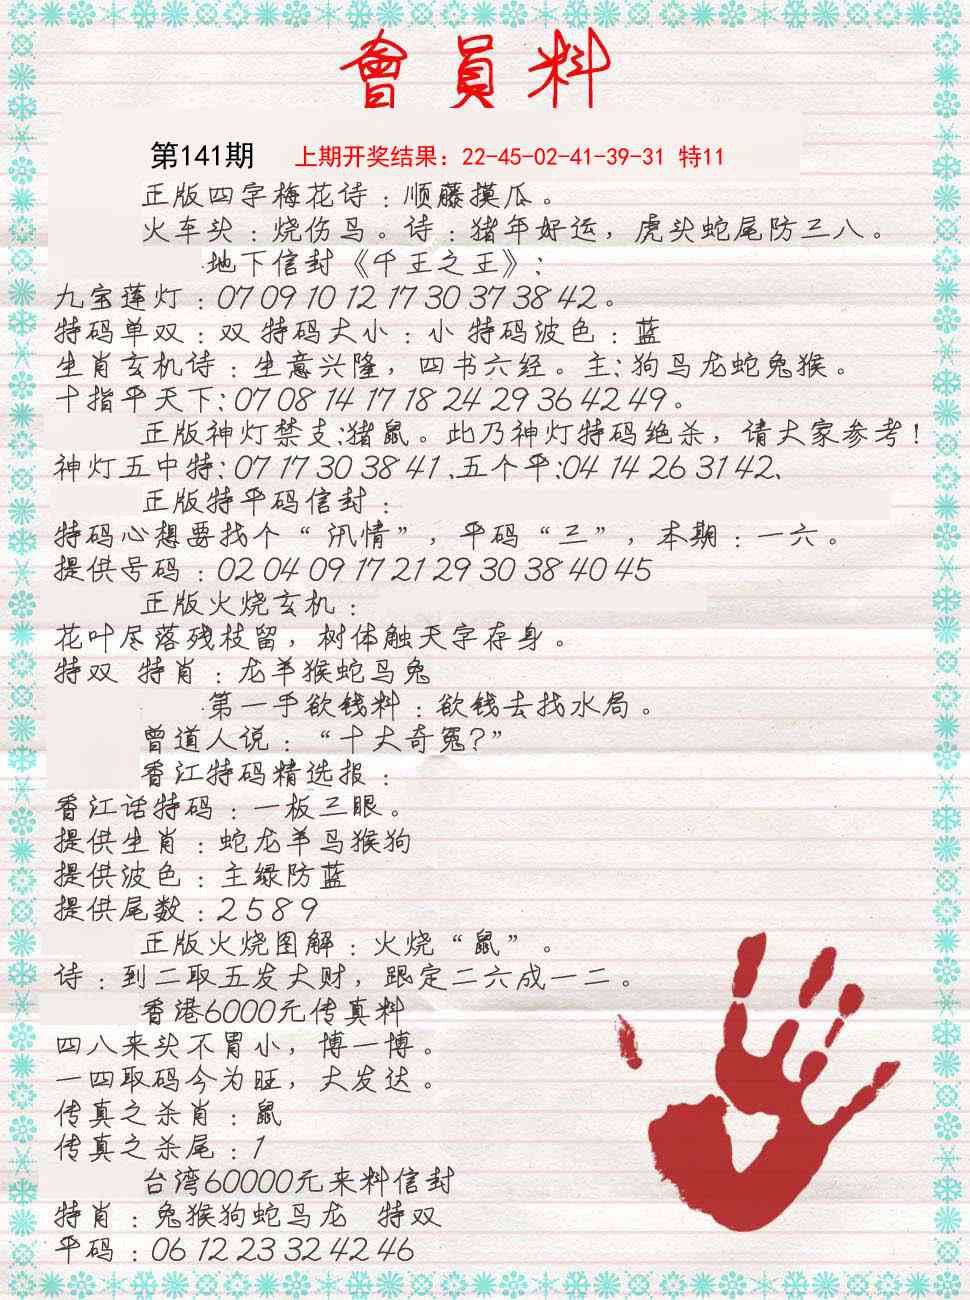 會員料
第141期 上期开奖结果：22-45-02-41-39-31 特11
正版四字梅花诗：顺藤摸瓜。
火车头：烧伤鸟。诗：猪年好运，虎头蛇尾防三八。
地下信封《千王之王》：
九宝莲灯：07 09 10 12 17 30 37 38 42。
特码单双：双 特码大小：小 特码波色：蓝
生肖玄机诗：生意兴隆，四书六经。主：狗马龙蛇兔猴。
十指平天下：07 08 14 17 18 24 29 36 42 49。
正版神灯禁支：猪鼠。此乃神灯特码绝杀，请大家参考！
神灯五中特：07 17 30 38 41、五个平：04 14 26 31 42、
正版特平码信封：
特码心想要找个“汛情”，平码“三”，本期：一六。
提供号码：02 04 09 17 21 29 30 38 40 45
正版火烧玄机：
花叶尽落残枝留，树体触天字存身。
特双 特肖：龙羊猴蛇马兔
第一手欲钱料：欲钱去找水局。
曾道人说：“十大奇冤？”
香江特码精选报：
香江话特码：一板三眼。
提供生肖：蛇龙羊马猴狗
提供波色：主绿防蓝
提供尾数：2 5 8 9
正版火烧图解：火烧“鼠”。
诗：到二取五发大财，跟定二六成一二。
香港6000元传真料
四八来头不胃小，博一博。
一四取码今为旺，大发达。
传真之杀肖：鼠
传真之杀尾：1
台湾60000元来料信封
特肖：兔猴狗蛇马龙 特双
平码：06 12 23 32 42 46